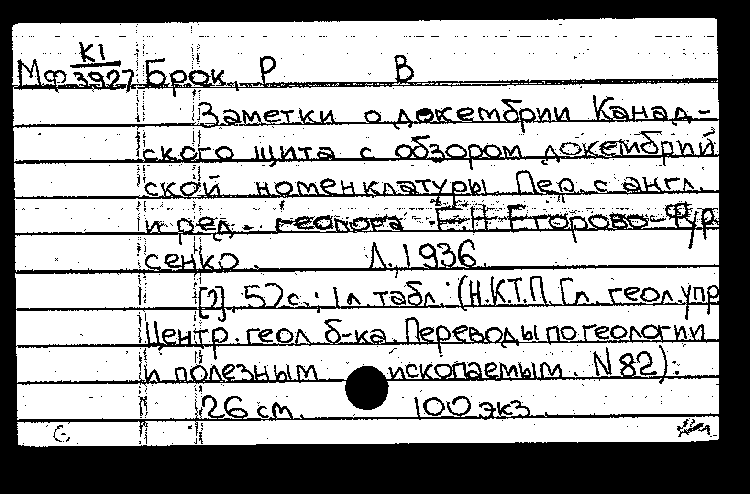 К1
Мф 3927 Брок, Р В
Заметки о докембрии Канад-
ского щита с обзором докембрий
ской номенклатуры Пер. с англ.
и ред. геолога Е.Н. Егорово-Фур
сенко. Л., 1936.
[2], 52 с.; 1 л. табл. (Н.К.Т.П. Гл. геол. упр
Центр. геол б-ка. Переводы по геологии
и полезным ископаемым. N 82):
26 см. 100 экз.